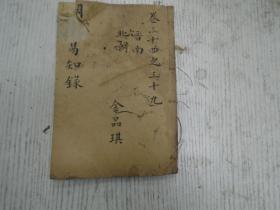 卷三十四之三十九
晋南
北朝
易知錄
金品琪